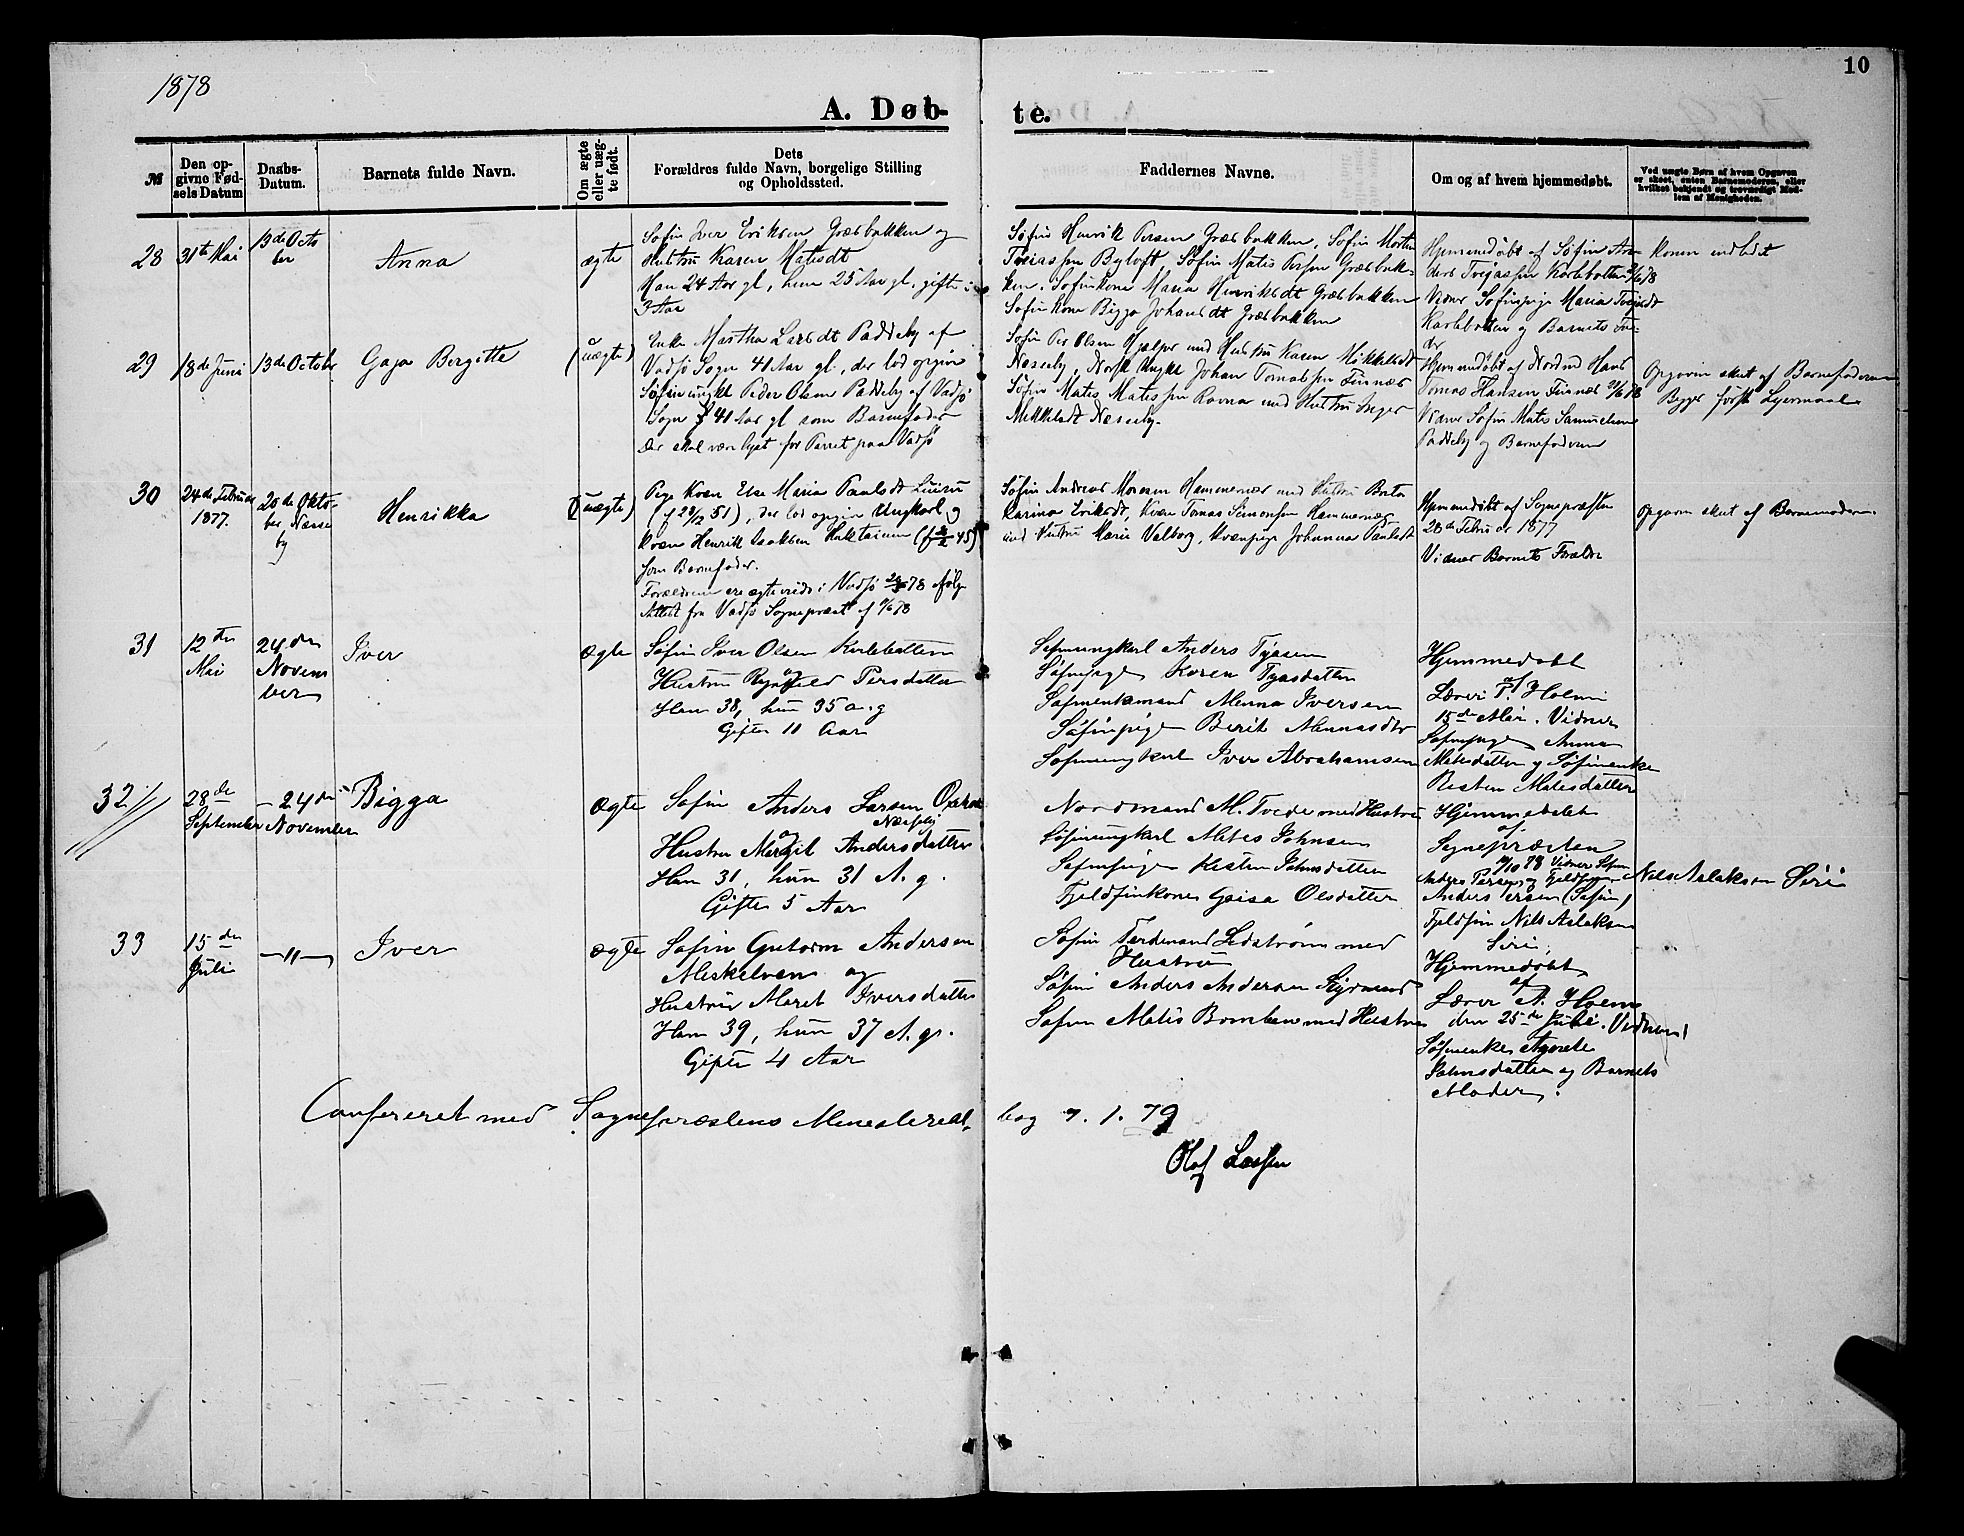 1878
10
A. Døb-
te.
№
Den op-
givne Fød-
sels Datum
Daabs-
Datum.
Barnets fulde Navn.
Om ægte
eller uæg-
te født.
Dets
Forældres fulde Navn, borgelige Stilling
og Opholdssted.
Faddernes Navne.
Om og af hvem hjemmedøbt.
Ved uægte Børn af hvem Opgaven
er skeet, enten Barnemoderen, eller
hvilket bekjendt og troværdigt Med-
lem af Menigheden.
28
31te Mai
13de Octo
ber
Anna
ægte
Søfin Iver Eriksen Græsbakken og
Hustru Karen Matisdt
Han 24 Aar gl, hun 25 Aar gl. gifte i
3 Aar
Søfin Henrik Persen Græsbakken, Søfin Morten
Byluft, Søfin Matis Persen Græsbak-
ken, Søfinkone Maria Henriksdt Græsbakken
Søfinkone Bigga Johansdt Græsbakken
Hjemmedøbt af Søfin An-
ders Karlebotten
Vidner Søfinpige Maria
Karlebotten og Barnets Fa-
der
konen indledt
29
18de Juni
13de October
Gaja Bergitte
(uægte)
Enke Martha Larsdt Paddeby af
Vadsø Sogn 41 Aar gl, der lod opgive
Søfinungkl Peder Olsen Paddeby af Vadsø
Sogn 41 Aar gl som Barnefader
Der skal være lyst for Parret paa Vadsø
Søfin Per Olsen Hjelper med Hustru Karen Mikkelsdt
Næseby, Norsk Ungkl Johan Tomassen Finnæs
Søfin Matis Matissen Ravna med Hustru Inger
Mikkelsdt Næseby.
Hjemmedøbt af Nordmd Hans
Tomas Hansen Finnæs
Vidner Søfin Matis Samuelsen
Paddeby og Barnefaderen
Opgaven skeet af Barnefaderen
Begges første Leiermaal
30
24de Februar
1877.
20de Okto-
ber Næse
by
Henrikka
(uægte)
Pige Kvæn Else Maria Paulsdt
(f 28/2 51), der lod opgive Ungkarl og
Kvæn Henrik Isaksen
som Barnefader.
Forældrene ere ægteviede i Vadsø 78 ifølge
Attest fra Vadsø Sognepræst af
Søfin Andreas Hammernæs med Hustru Berta
Karina Eriksdt, Kvæn Tomas Simonsen Hammernæs
med Hustru Marie Valborg, Kvænpige Johanna Paulsdt
Hjemmedøbt af Sognepræsten
28de Februar 1877
Vidner Barnets Forældre
opgaven skeet af Barnemoderen.
31
12te
Mai
24de
Novem
ber
Iver
Ægte
Søfin Iver Olsen Karlebotten
og
Hustru Persdatter
Han 38, hun 35 a. g
Gifte 11 Aar
Søfinungkarl Anders
Søfinpige Karen
Søfinenkemand Menna Iversen
Søfinpige Berit Mennasdtr
Søfinungkarl Iver Abrahamsen
Hjemmedøbt
af
Lærer Holm
15de Mai. Vidner
Søfinpige Anna
Matisdatter og Søfinenke
Kirsten Matisdatter
32
28de
September
24de
November
Bigga
Ægte
Søfin Anders Larsen
Næseby
og
Hustru Margit Andersdatter
Han 31, hun 31 A. g.
Gifte 5 Aar
Nordmand M. Tvede med Hustru
Søfinungkarl Matis Johnsen
Søfinpige Kirsten Johnsdatter
Fjeldfinkone Gaisa Olsdatter
Hjemmedøbt
af
Sognepræsten
10 78 Vidner Søfin
Anders Persen og Fjeldfin Nils Aslaksen Siri
Anders Persen (Søfin)
Fjeldfin Nils Aslaksen
Siri
33
15de
Juli
—"—
Iver
ægte
Søfin Gutorm Andersen
Meskelven og
Hustru Maret Iversdatter
Han 39, hun 37 A. g.
Gifte 4 Aar
Søfin Ferdinand Ledstrøm med
Hustru
Søfin Anders Andersen
Søfin Matis Bomban med Hustru
Hjemmedøbt
af
Lærer A. Holm
den 25de Juli. Vidner
Søfinenke Agnete
Johnsdatter og Barnets
Moder.
Confereret med Sognepræstens Ministerial-
bog 7. 1. 79
Olaf Lassen